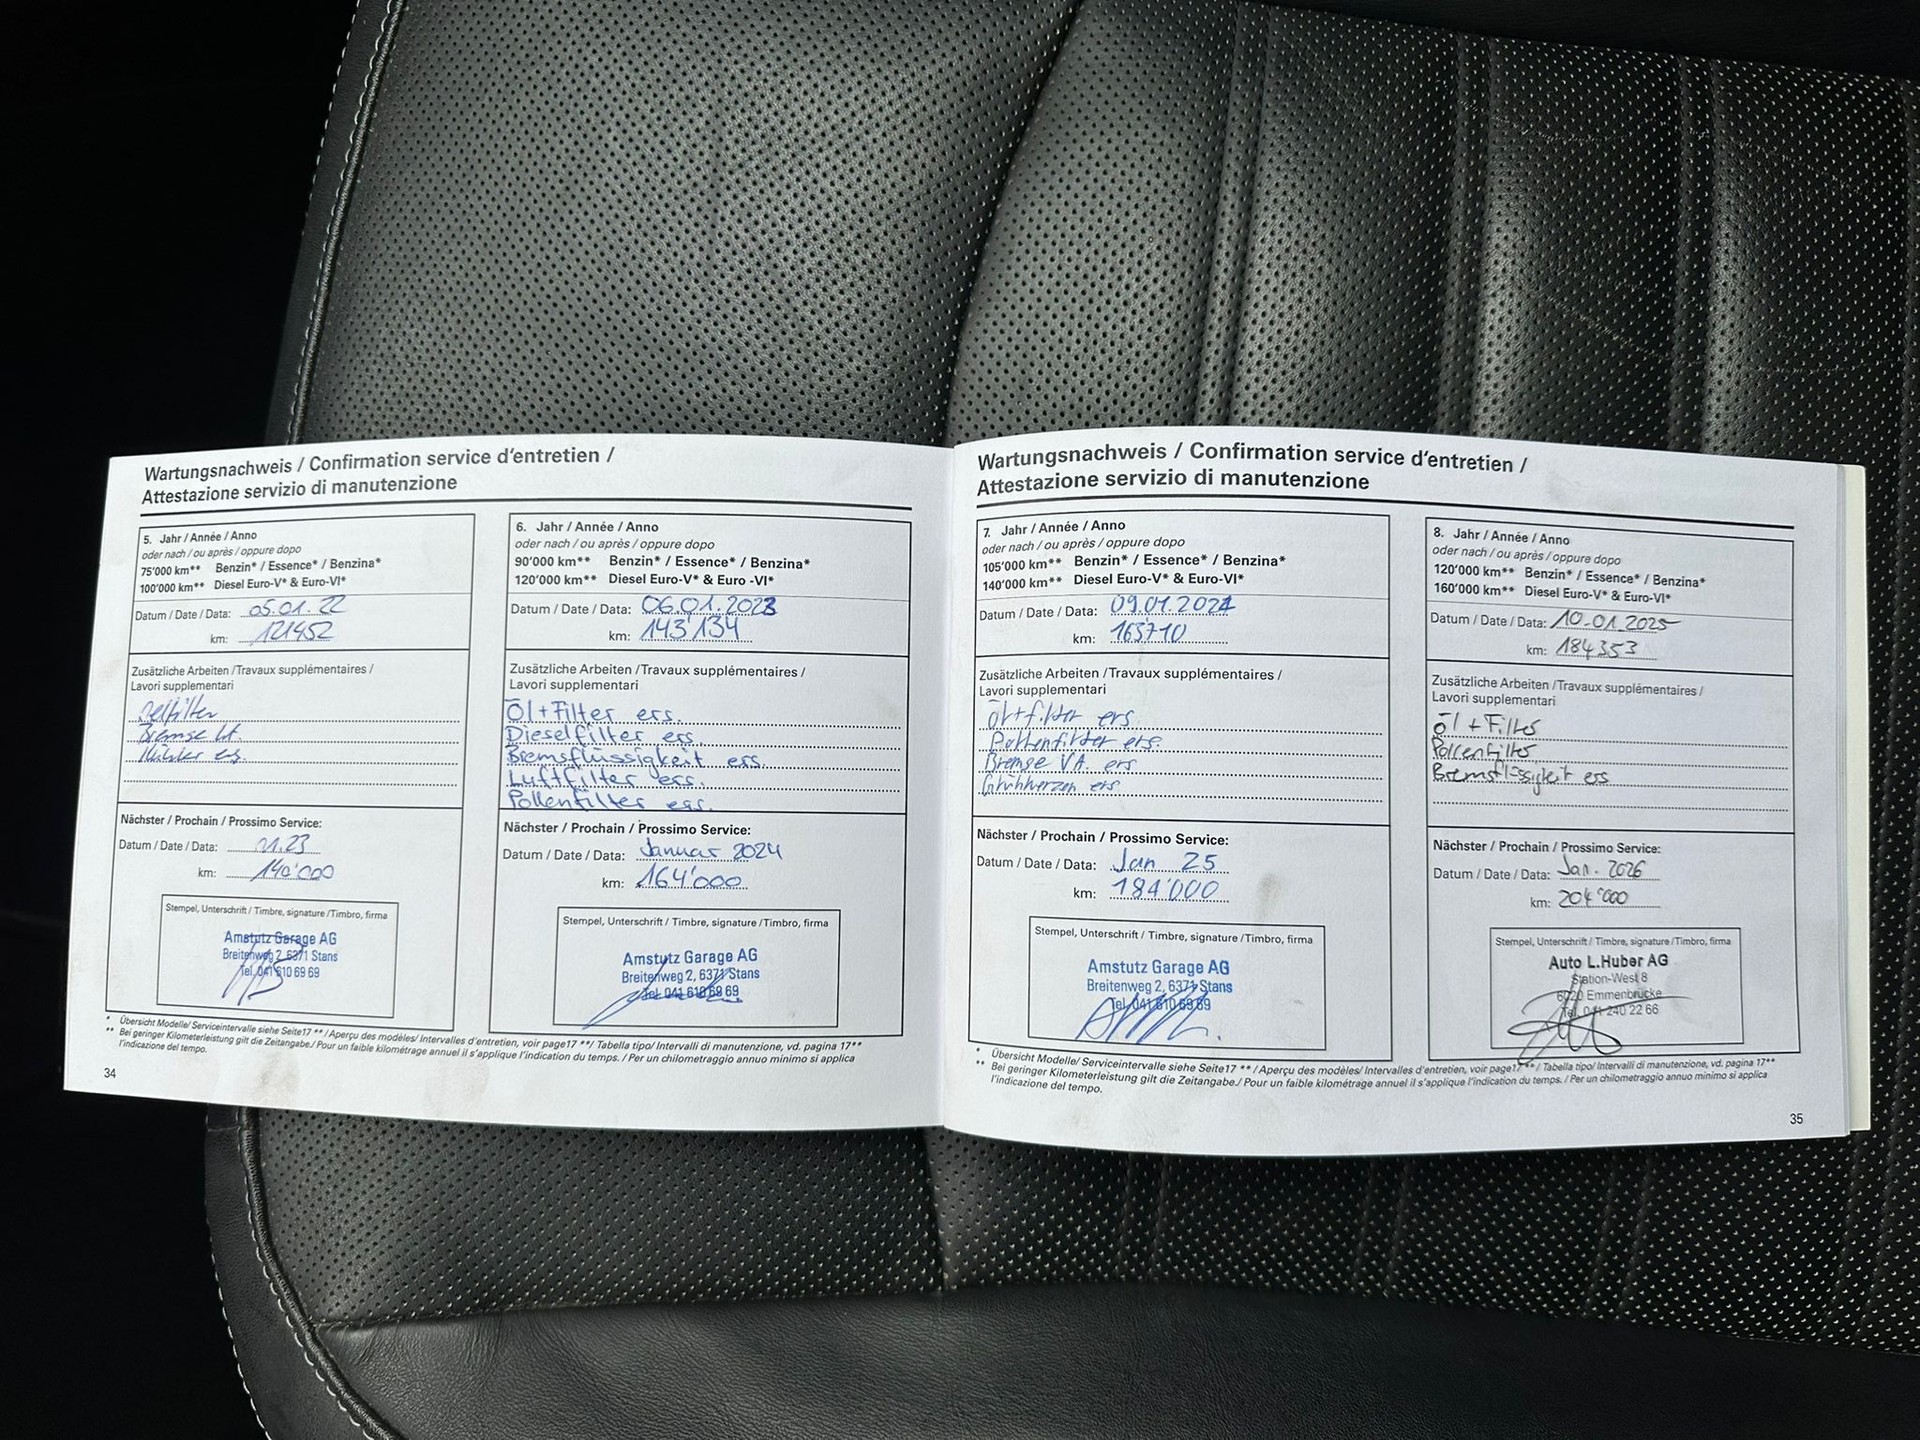 Wartungsnachweis / Confirmation service d'entretien /
Attestazione servizio di manutenzione
5. Jahr / Année / Anno
oder nach / ou après / oppure dopo
75'000 km** Benzin* / Essence* / Benzina*
100'000 km** Diesel Euro-V* & Euro-VI*
Datum / Date / Data: 05.01.22
km: 121452
Zusätzliche Arbeiten /Travaux supplémentaires /
Lavori supplementari
Bremse
ers.
Nächster / Prochain / Prossimo Service:
Datum / Date / Data: 01.23
km: 140'000
Stempel, Unterschrift / Timbre, signature /Timbro, firma
Amstutz Garage AG
Breitenweg 2, 6371 Stans
Tel. 041 610 69 69
6. Jahr / Année / Anno
oder nach / ou après / oppure dopo
90'000 km** Benzin* / Essence* / Benzina*
120'000 km** Diesel Euro-V* & Euro -VI*
Datum / Date / Data: 06.01.2023
km: 143'134
Zusätzliche Arbeiten /Travaux supplémentaires /
Lavori supplementari
Öl + Filter ers.
Dieselfilter ers.
Bremsflüssigkeit ers.
Luftfilter ers.
Pollenfilter ers.
Nächster / Prochain / Prossimo Service:
Datum / Date / Data: Januar 2024
km: 164'000
Stempel, Unterschrift / Timbre, signature /Timbro, firma
Amstutz Garage AG
Breitenweg 2, 6371 Stans
Tel. 041 610 69 69
* Übersicht Modelle/ Serviceintervalle siehe Seite17 ** / Aperçu des modèles/ Intervalles d'entretien, voir page17 **/ Tabella tipo/ Intervalli di manutenzione, vd. pagina 17**
** Bei geringer Kilometerleistung gilt die Zeitangabe./ Pour un faible kilométrage annuel il s'applique l'indication du temps. / Per un chilometraggio annuo minimo si applica
l'indicazione del tempo.
34
Wartungsnachweis / Confirmation service d'entretien /
Attestazione servizio di manutenzione
7. Jahr / Année / Anno
oder nach / ou après / oppure dopo
105'000 km** Benzin* / Essence* / Benzina*
140'000 km** Diesel Euro-V* & Euro-VI*
Datum / Date / Data: 09.01.2024
km: 163710
Zusätzliche Arbeiten /Travaux supplémentaires /
Lavori supplementari
Öl+filter ers
Pollenfilter ers.
Bremse VA. ers
Glühkerzen ers
Nächster / Prochain / Prossimo Service:
Datum / Date / Data: Jan 25
km: 184'000
Stempel, Unterschrift / Timbre, signature /Timbro, firma
Amstutz Garage AG
Breitenweg 2, 6371 Stans
Tel. 041 610 69 69
8. Jahr / Année / Anno
oder nach / ou après / oppure dopo
120'000 km** Benzin* / Essence* / Benzina*
160'000 km** Diesel Euro-V* & Euro-VI*
Datum / Date / Data: 10.01.2025
km: 184353
Zusätzliche Arbeiten /Travaux supplémentaires /
Lavori supplementari
Öl + Filter
Pollenfilter
Bremsflüssigkeit ers
Nächster / Prochain / Prossimo Service:
Datum / Date / Data: Jan. 2026
km: 204'000
Stempel, Unterschrift / Timbre, signature /Timbro, firma
Auto L.Huber AG
Station-West 8
6020 Emmenbrücke
Tel. 041 240 22 66
* Übersicht Modelle/ Serviceintervalle siehe Seite17 ** / Aperçu des modèles/ Intervalles d'entretien, voir page17 **/ Tabella tipo/ Intervalli di manutenzione, vd. pagina 17**
** Bei geringer Kilometerleistung gilt die Zeitangabe./ Pour un faible kilométrage annuel il s'applique l'indication du temps. / Per un chilometraggio annuo minimo si applica
l'indicazione del tempo.
35